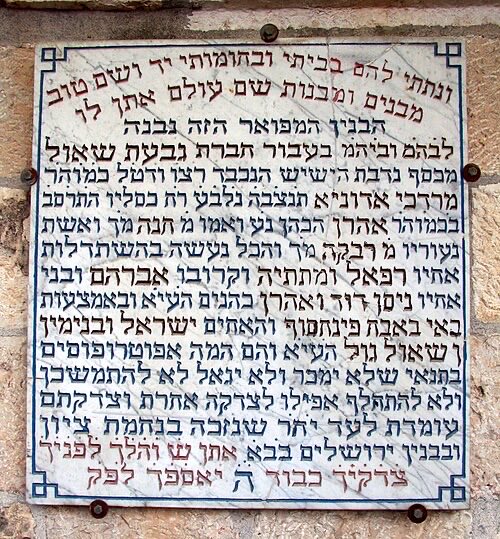 ונתתי להם בביתי ובחומותי יד ושם טוב
מבנים ומבנות שם עולם אתן לו
הבנין המפואר הזה נבנה
לבהמ וביהמ בעבור חברת גבעת שאול
מכסף נדבת הישיש הנכבד רצו ודטל כמוהר
מרדכי אדוניא תנצבה נלבע רח כסליו התרסב
בכמוהר אהרן הכהן נע ואמו מ חנה מך ואשת
נעוריו מ רבקה מך והכל נעשה בהשתדלות
אחיו רפאל ומתתיה וקרובו אברהם ובני
אחיו ניסן דוד ואהרן כהנים העיא ובאמצעות
באי באבה פינחסוף והאחים ישראל ובנימין
ן שאול גול העיא והם המה אפוטרופוסים
בתנאי שלא ימכר ולא יגאל לא להתמשכן
ולא להתחלף אפילו לצדקה אחרת וצדקתם
עומדת לעד יחד שנזכה בנחמת ציון
ובבנין ירושלים בבא אתן ש והלך לפניך
צדקיך כבוד ה יאספך לפק